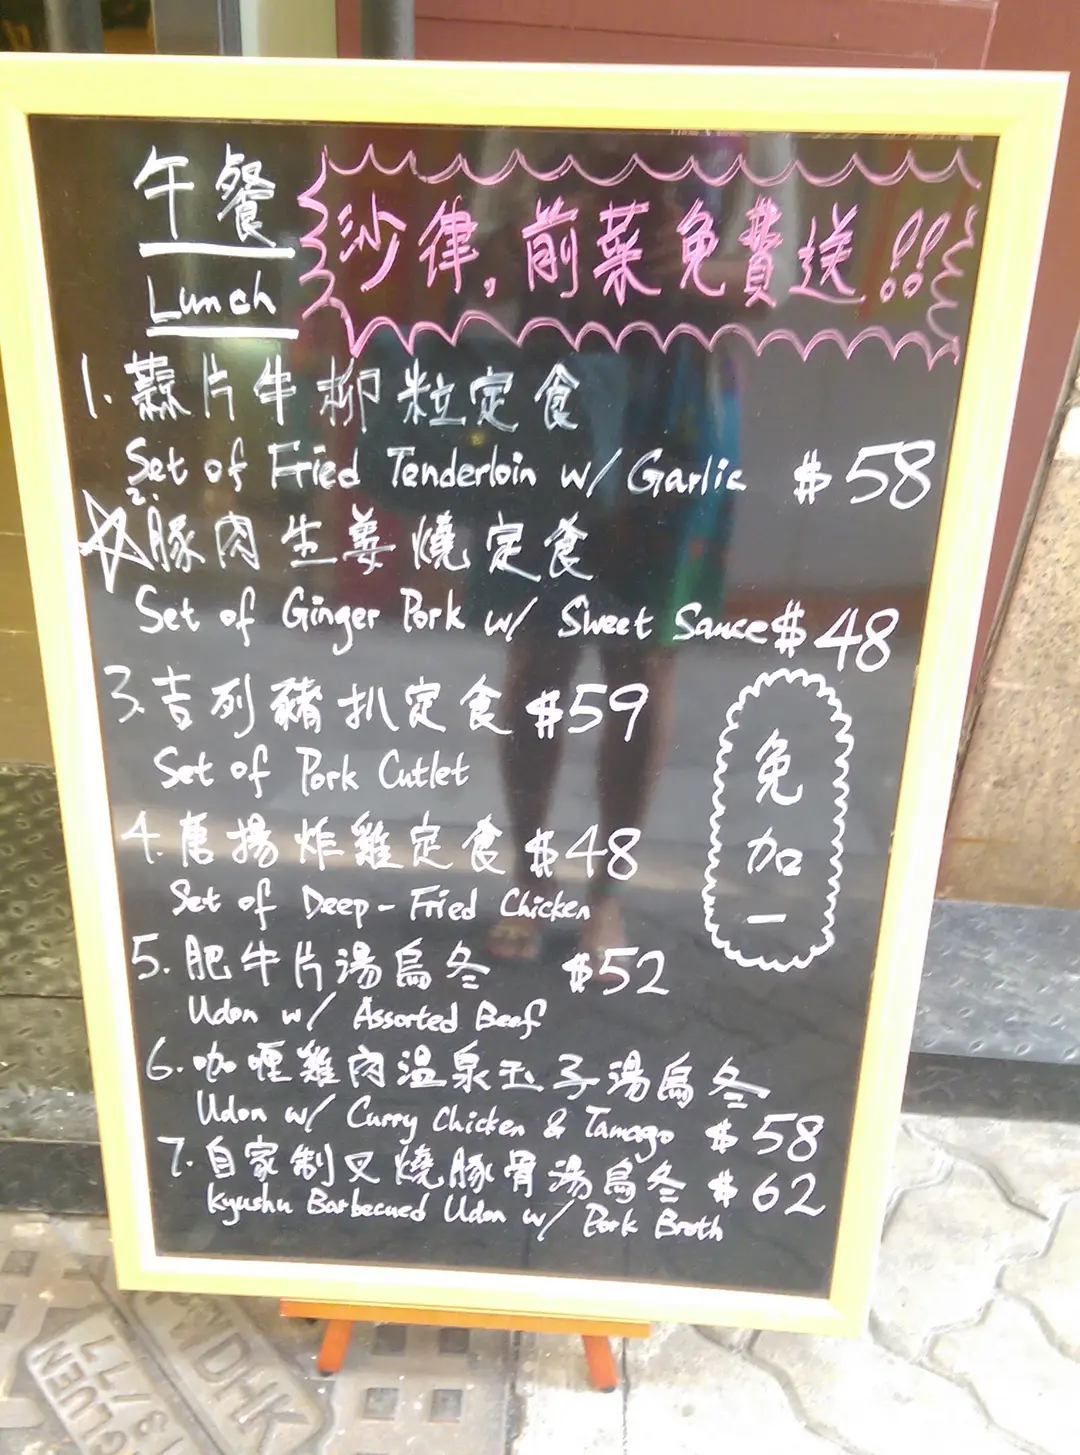 午餐
Lunch
沙律, 前菜免費送!!
1. 蒜片牛柳粒定食
Set of Fried Tenderloin w/ Garlic $58
2. 豚肉生姜燒定食
Set of Ginger Pork w/ Sweet Sauce $48
3. 吉列豬扒定食 $59
Set of Pork Cutlet
4. 唐揚炸雞定食 $48
Set of Deep-Fried Chicken
5. 肥牛片湯烏冬 $52
Udon w/ Assorted Beef
6. 咖喱雞肉温泉玉子湯烏冬
Udon w/ Curry Chicken & Tamago $58
7. 自家制叉燒豚骨湯烏冬 $62
Kyushu Barbecued Udon w/ Pork Broth
免加一